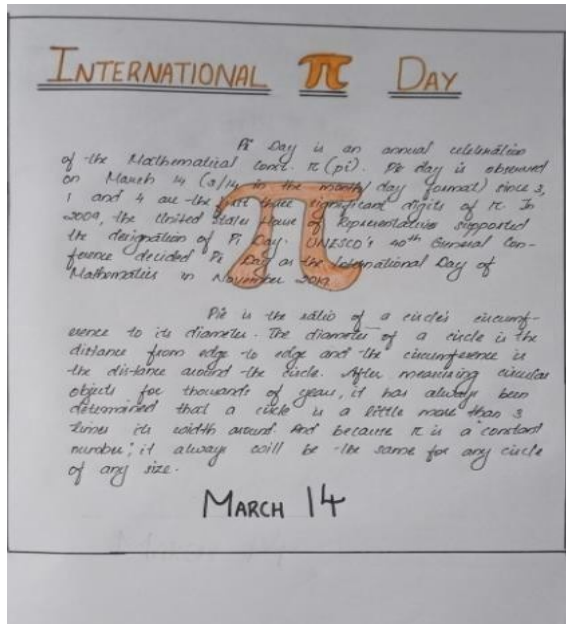 INTERNATIONAL π DAY
Pi Day is an annual celebration
of the Mathematical const. π (pi). Pie day is observed
on March 14 (3/14 in the month/day format) since 3,
1 and 4 are the first three significant digits of π. In
2009, the United States House of Representatives supported
the designation of Pi Day. UNESCO's 40th General Con-
ference decided Pi Day as the International Day of
Mathematics in November 2019.
Pie is the ratio of a circle's circumf-
erence to its diameter. The diameter of a circle is the
distance from edge to edge and the circumference is
the distance around the circle. After measuring circular
objects for thousands of years, it has always been
determined that a circle is a little more than 3
times its width around. And because π is a constant
number; it always will be the same for any circle
of any size.
MARCH 14